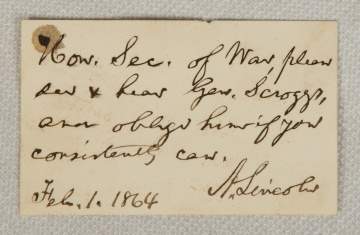 Hon. Sec. of War, please
see & hear Gen. Scroggs,
and oblige him if you
consistently can.
A. Lincoln
Feb. 1. 1864